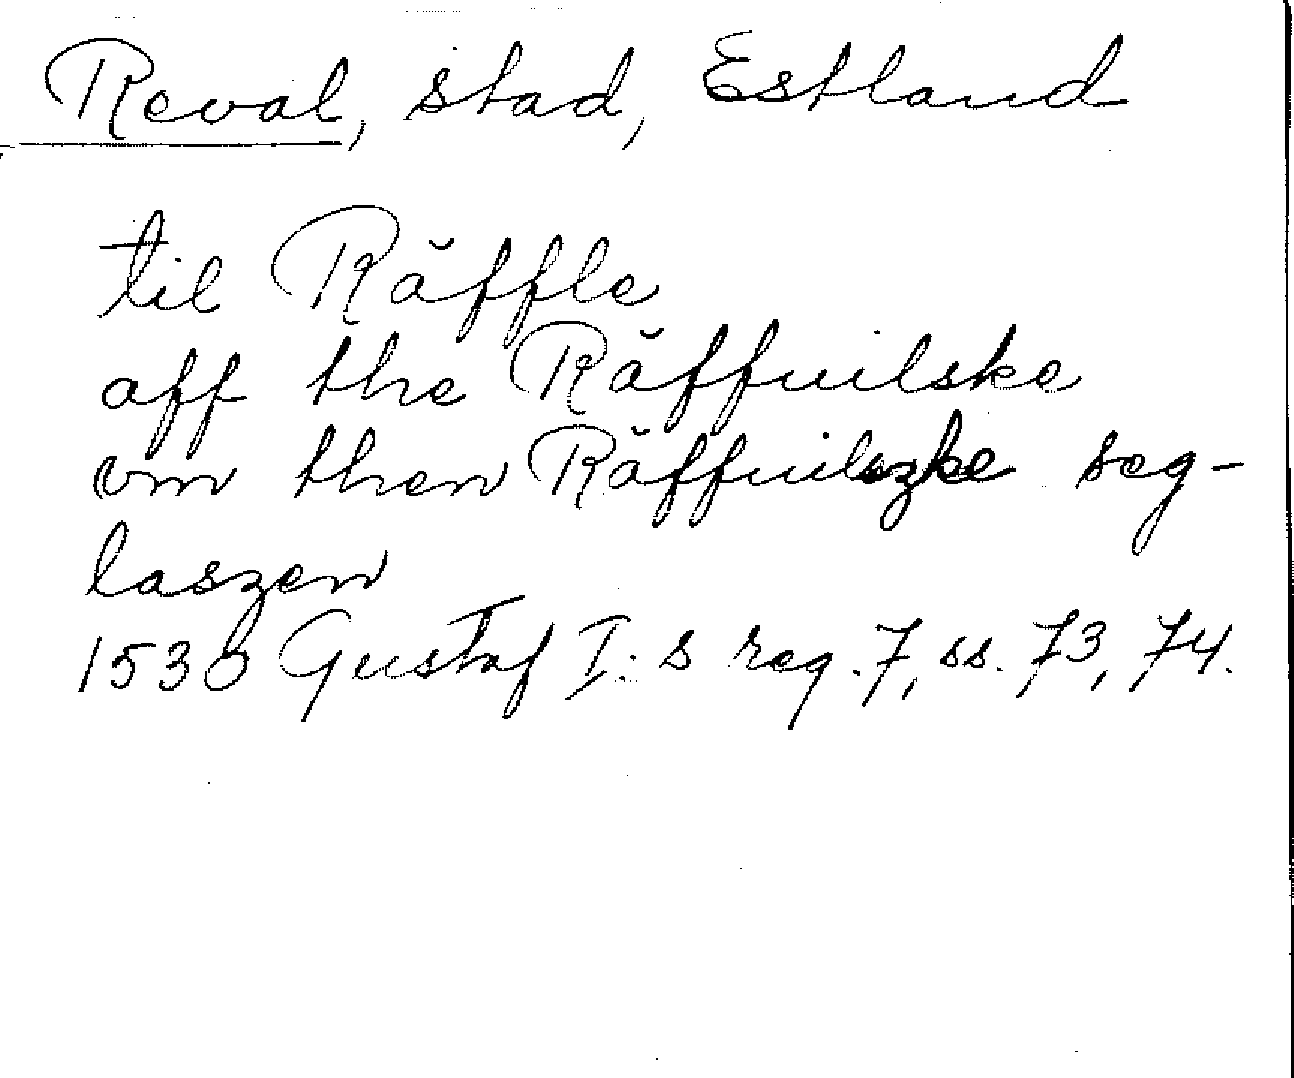 Reval, stad, Estland
til Räffle
aff the Räffuilske
om then Räffuilszke seg-
laszen
1530 Gustaf I:s reg. 7, ss. 73, 74.